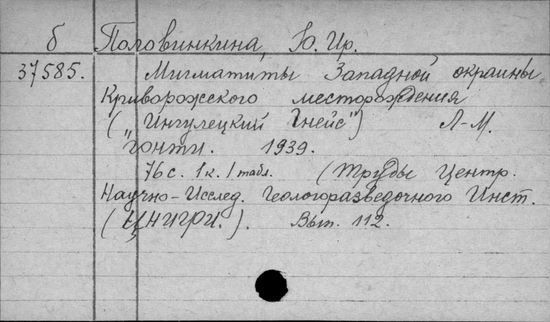 б Половинкина, Ю. Ир.
37585. Мигматиты Западной окраины
Криворожского месторождения
(„Ингулецкий Гнейс") Л-М.
ГОНТИ. 1939.
76 с. 1 к. 1 табл. (Труды Центр.
Научно-Исслед. Геологоразведочного Инст.
(ЦНИГРИ.). Вып. 112.